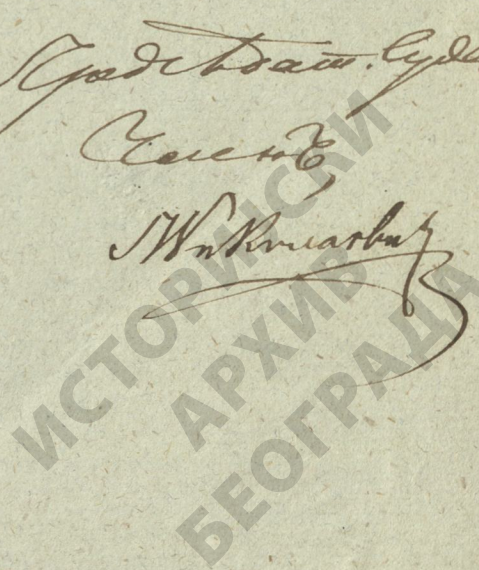 Предсѣдат. Суда
Членъ,
Николаевић
ИСТОРИЈСКИ
АРХИВ
БЕОГРАДА